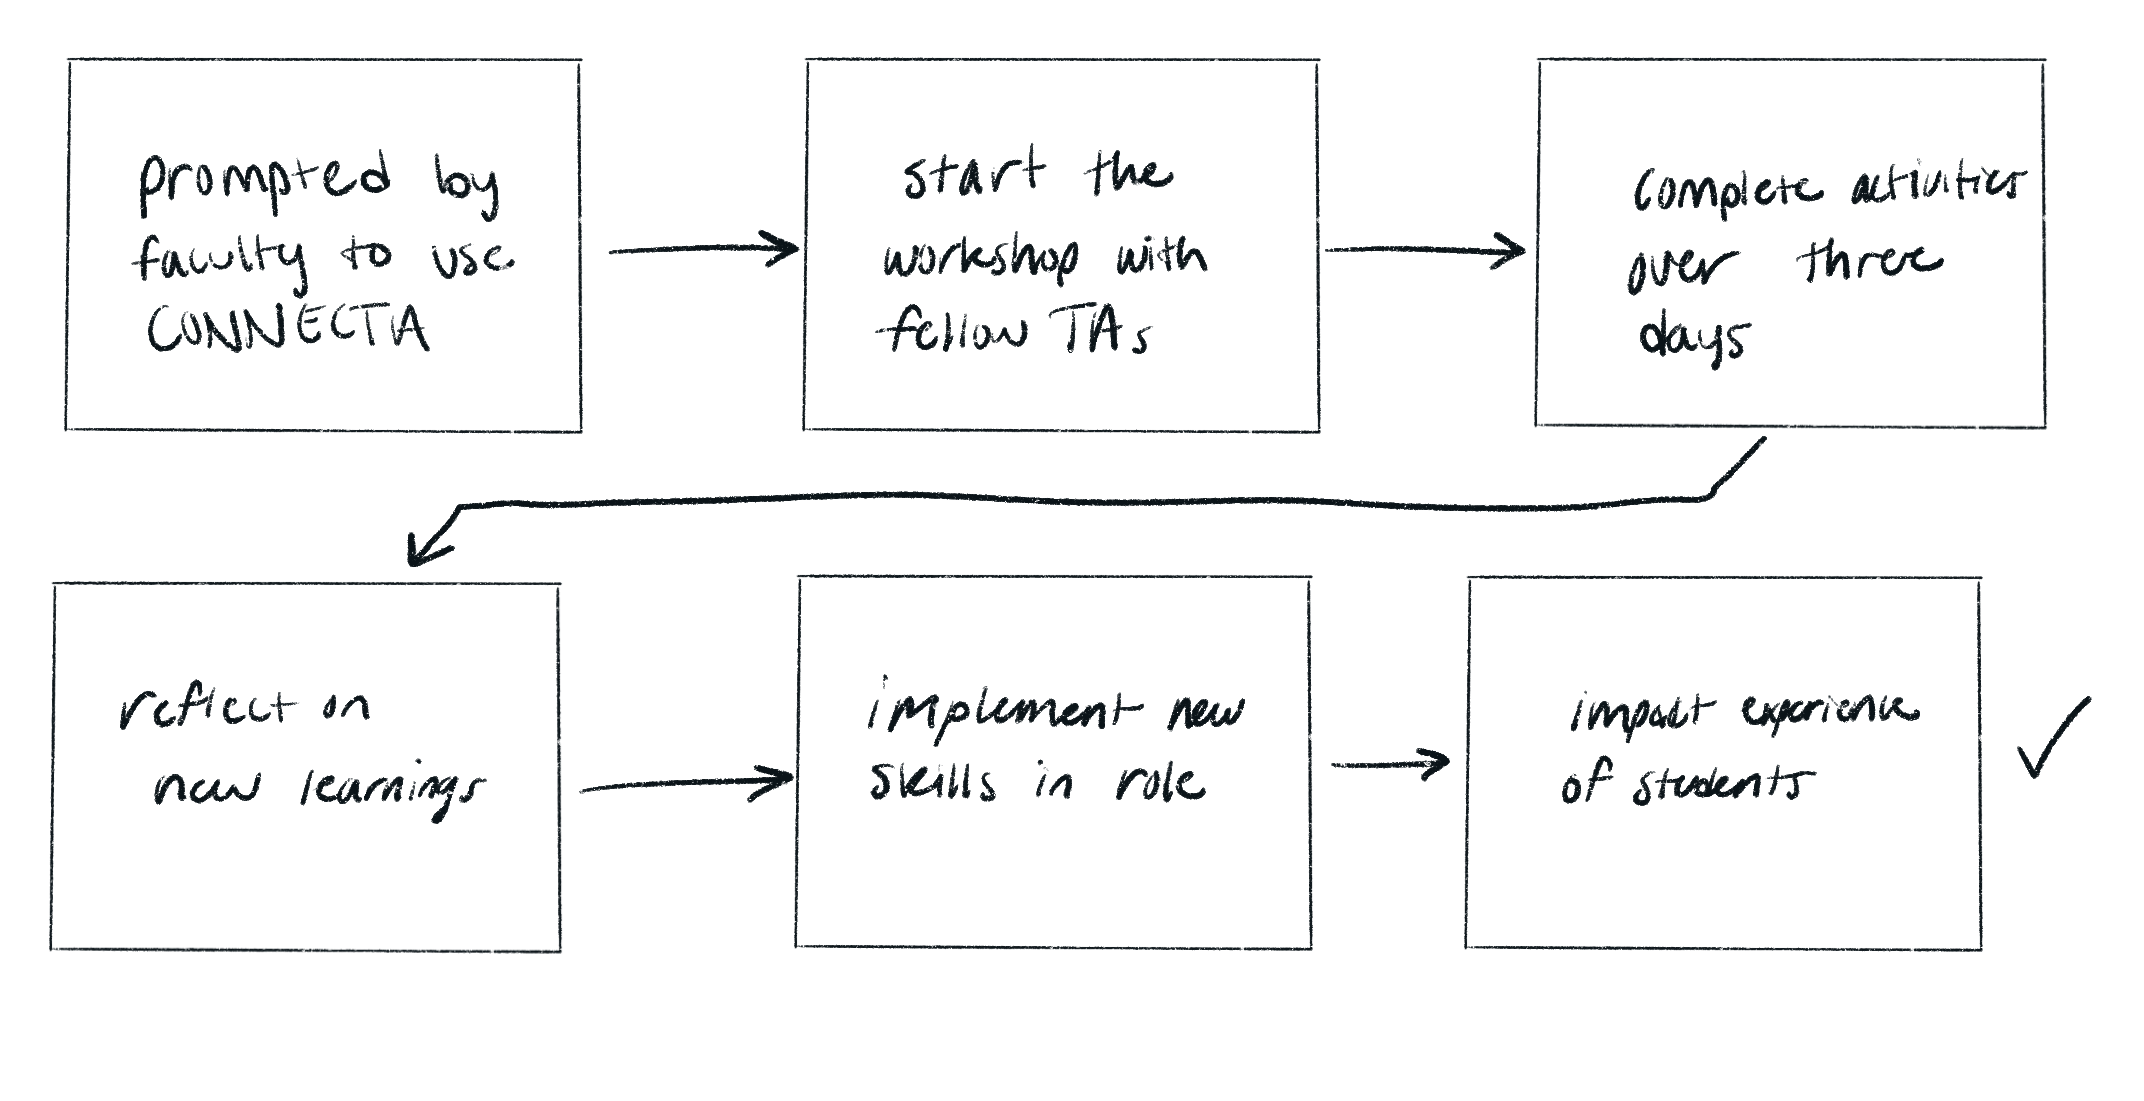 prompted by
faculty to use
CONNECTA
start the
workshop with
fellow TAs
complete activities
over three
days
reflect on
new learnings
implement new
skills in role
impact experience
of students